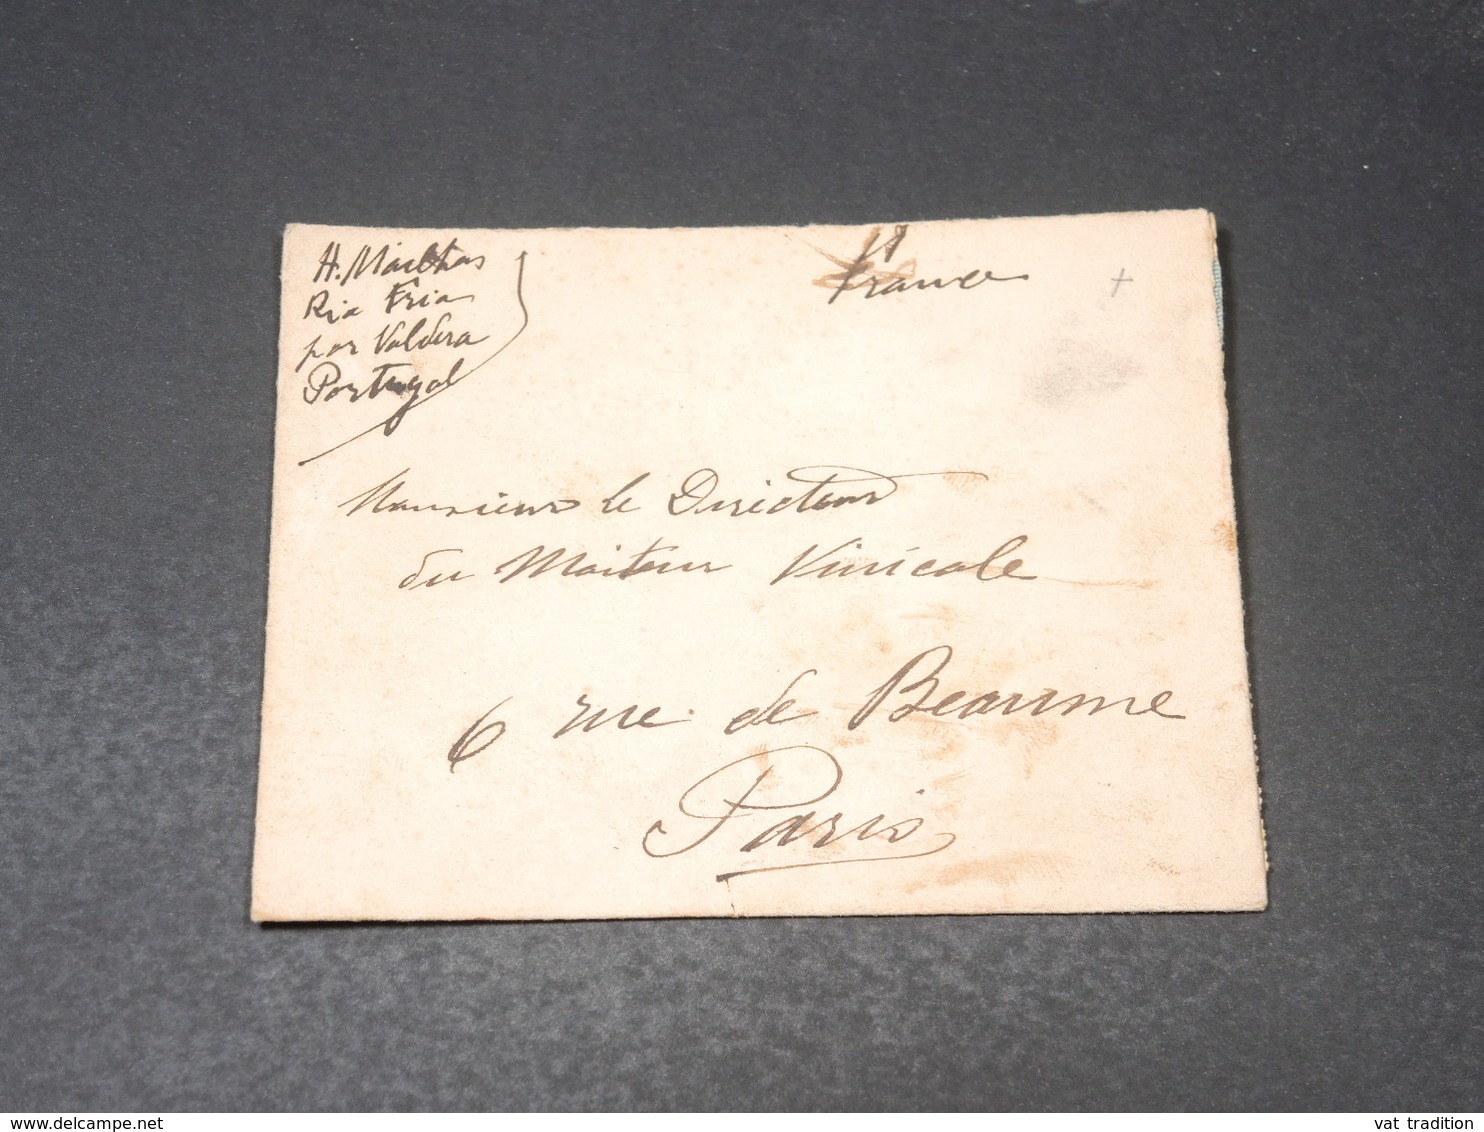 H. Mailhos
Ria Fria
por Valdera
Portugal
France
+
Monsieur le Directeur
du Moniteur Vinicole
6 rue de Beaune
Paris
vat tradition